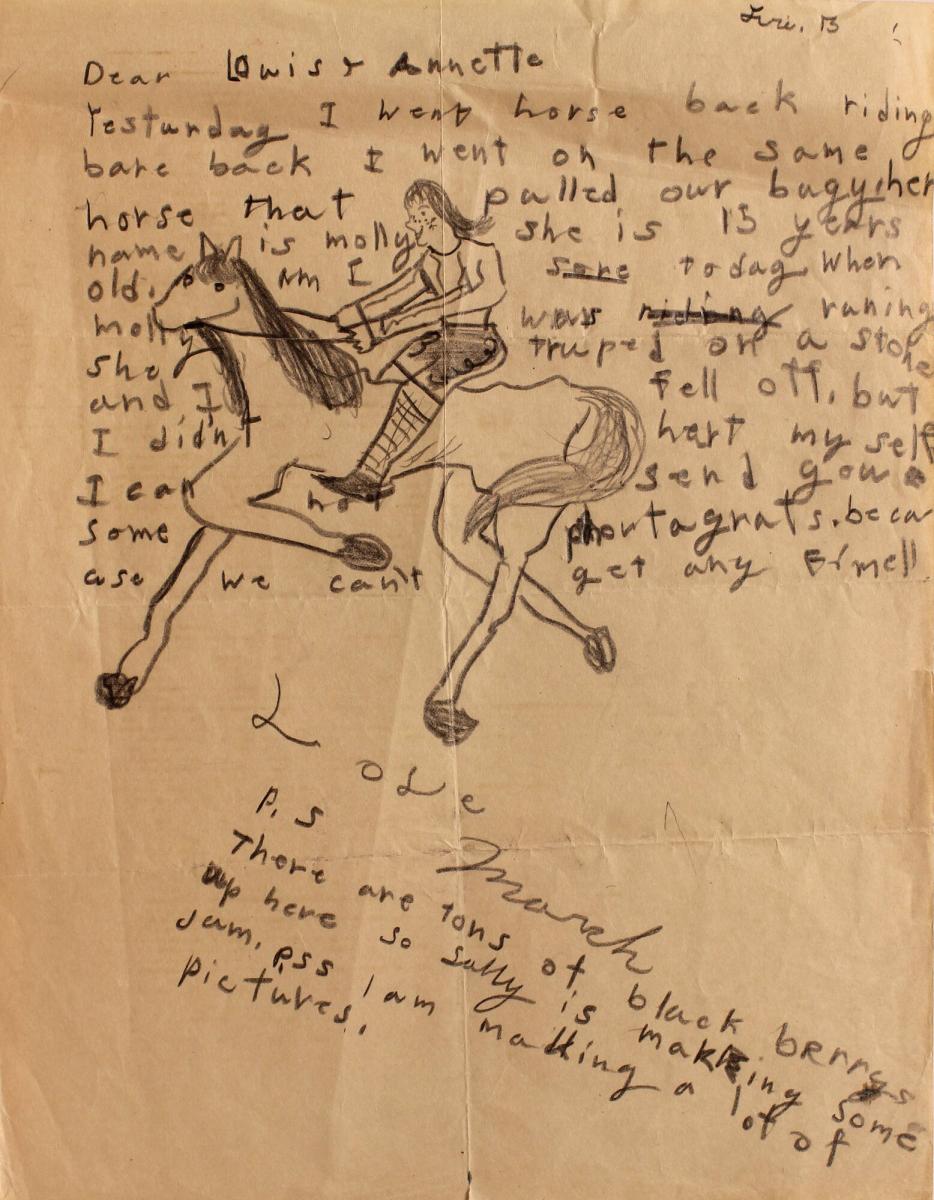 Fri. 13
Dear Louis & Annette
Yesturday I went horse back riding
bare back I went on the same
horse that palled our bagy, her
name is molly she is 13 years
old. Am I sore today when
molly was riding raning
she truped on a stone
and I fell off, but
I didn't hart my self
I can not send you
some photagrats. beca
ase we can't get any
Love
March
P. S
There are tons of black berrys
up here so Sally is making some
Jam. P.SS I am making a lot of
pictures.